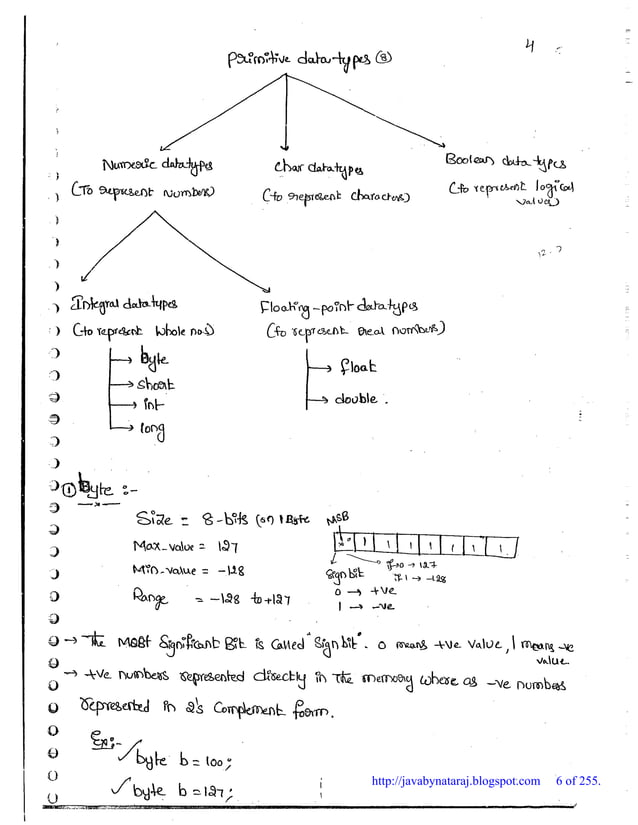 4
Primitive data-types (8)
Numeric datatypes
(To represent numbers)
Char datatypes
(to represent characters)
Boolean data types
(to represent logical
values)
12.7
Integral datatypes
(to represent whole nos)
Floating-point datatypes
(to represent real numbers)
byte
short
int
long
float
double.
① Byte :-
Size = 8-bits (or) 1 Byte
MSB
Max_value = 127
Min_value = -128
Range = -128 to +127
1 1 1 1 1 1 1
Sign bit
if 0 → 127
if 1 → -128
0 → +ve
1 → -ve
→ The Most Significant Bit is called "Sign bit". 0 means +ve value, 1 means -ve
value
→ +ve numbers represented directly in the memory where as -ve numbers
represented in 2's complement form.
Ex:-
✓ byte b = 100;
✓ byte b = 127;
http://javabynataraj.blogspot.com 6 of 255.